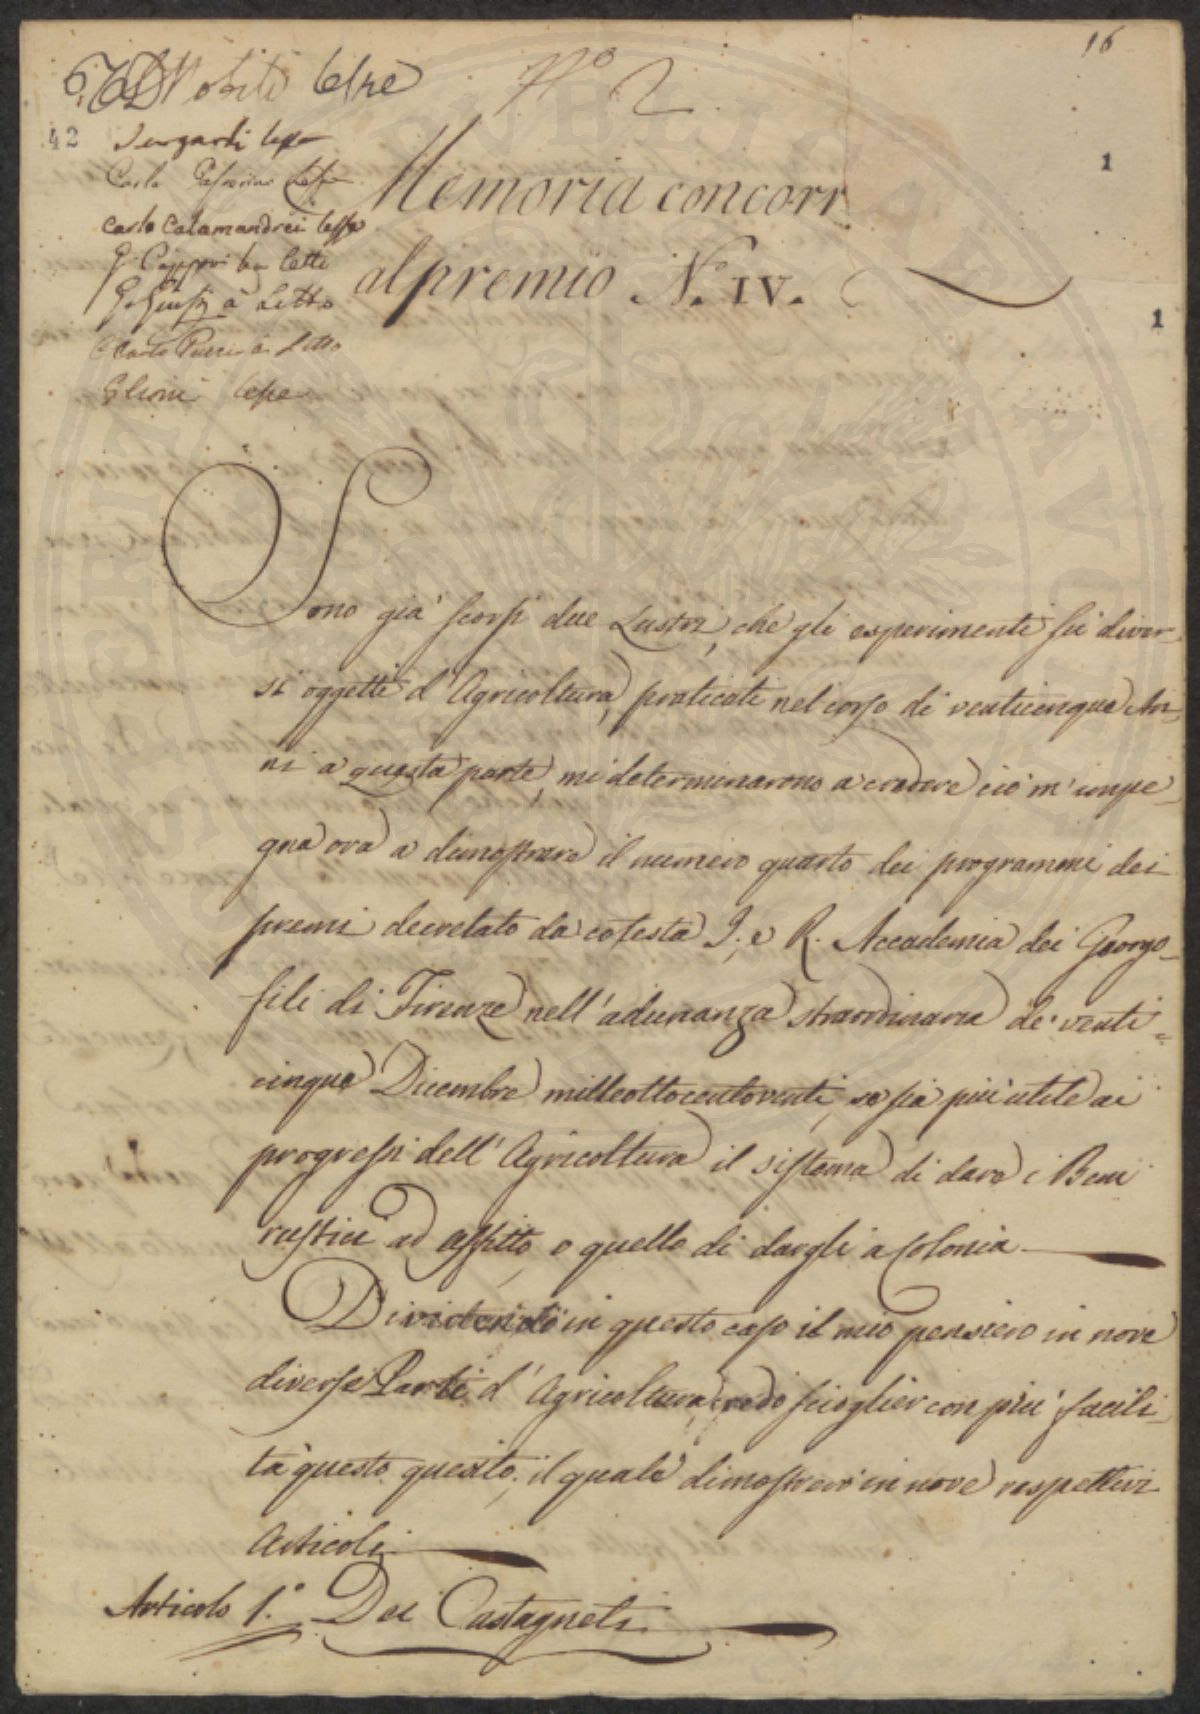 16
Nº 2
Nobili lesse
42
Targardi lesse
Carlo Passerini Lesse
Carlo Calamandrei lesse
G. Capponi ha letto
G. Giusti à Letto
Carlo Pucci à Letto
lesse
1
Memoria concorr
al premio N.º IV.
1
Sono già scorsi due Lustri, che gli esperimenti sù diver-
si oggetti d'Agricoltura, praticati nel corso di venticinque An-
ni a questa parte, mi determinarono a credere ciò m'impe-
gna ora a dimostrare il numero quarto dei programmi dei
premi decretato da cotesta I. e R. Accademia dei Georgo-
fili di Firenze nell'adunanza straordinaria de' venti-
cinque Dicembre milleottocentoventi, se sia più utile ai
progressi dell'Agricoltura il sistema di dare i Beni
rustici ad affitto, o quello di dargli a Colonia.
Dividendo in questo caso il mio pensiero in nove
diverse Parti d'Agricoltura, credo scioglier con più facili-
tà questo quesito; il quale dimostrerò in nove respettivi
Articoli.
Articolo 1.º Dei Castagneti